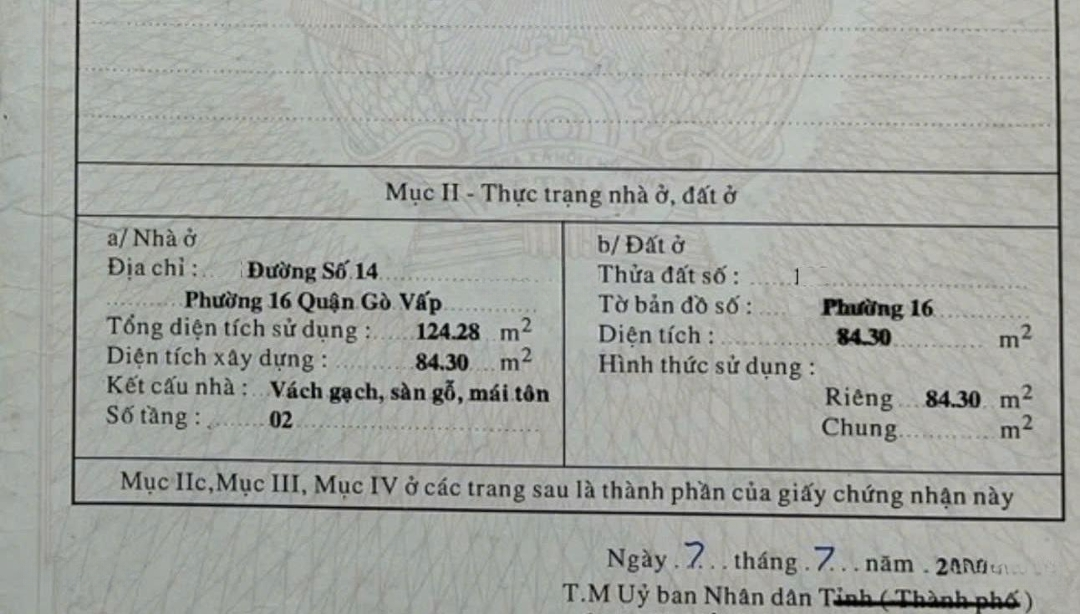 Mục II - Thực trạng nhà ở, đất ở
a/ Nhà ở
Địa chỉ : Đường Số 14
Phường 16 Quận Gò Vấp
Tổng diện tích sử dụng : 124.28 m²
Diện tích xây dựng : 84.30 m²
Kết cấu nhà : Vách gạch, sàn gỗ, mái tôn
Số tầng : 02
b/ Đất ở
Thửa đất số : 1
Tờ bản đồ số : Phường 16
Diện tích : 84.30 m²
Hình thức sử dụng :
Riêng 84.30 m²
Chung m²
Mục IIc, Mục III, Mục IV ở các trang sau là thành phần của giấy chứng nhận này
Ngày 7 tháng 7 năm
T.M Uỷ ban Nhân dân Tỉnh ( Thành phố )